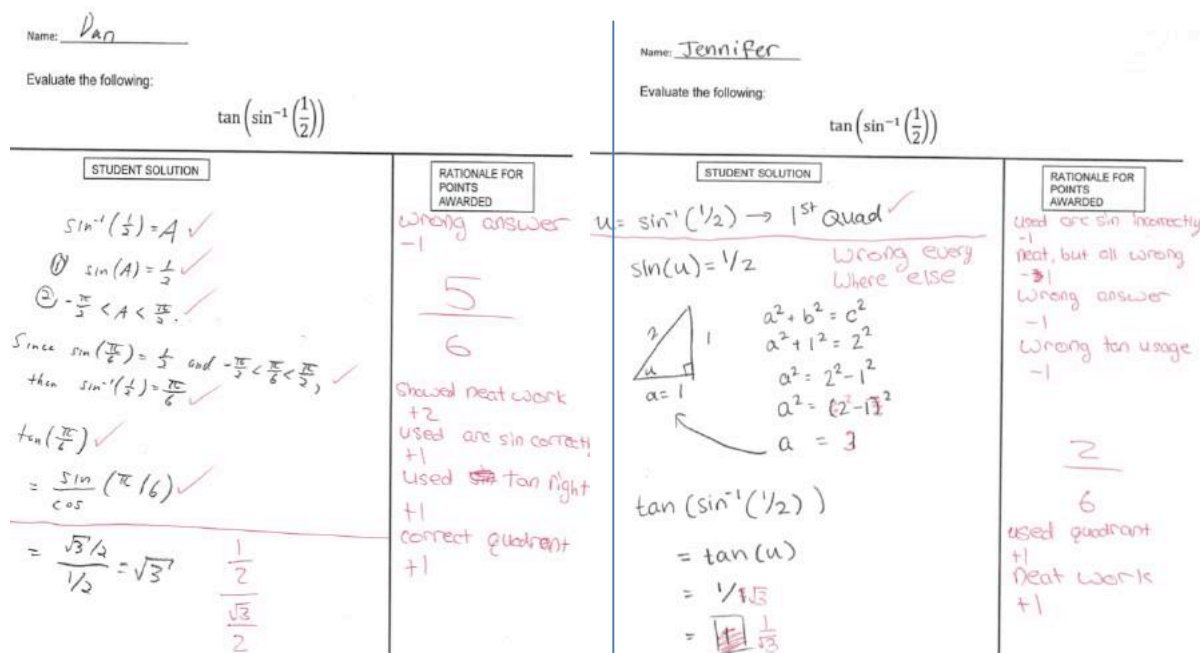 Name: Dan
Evaluate the following:
tan(sin⁻¹(1/2))
STUDENT SOLUTION
sin⁻¹(1/2) = A ✓
① sin(A) = 1/2 ✓
② -π/2 < A < π/2. ✓
Since sin(π/6) = 1/2 and -π/2 < π/6 < π/2, ✓
then sin⁻¹(1/2) = π/6 ✓
tan(π/6) ✓
= sin/cos (π/6) ✓
= (√3/2)/(1/2) = √3
(1/2)/(√3/2)
RATIONALE FOR
POINTS
AWARDED
wrong answer
-1
5/6
Showed neat work
+2
used arc sin correctl
+1
used tan right
+1
correct quadrant
+1
Name: Jennifer
Evaluate the following:
tan(sin⁻¹(1/2))
STUDENT SOLUTION
u = sin⁻¹(1/2) → 1st Quad ✓
sin(u) = 1/2
Wrong every
where else
2
1
u
a = 1
a² + b² = c²
a² + 1² = 2²
a² = 2² - 1²
a² = (2 - 1)²
a =
tan(sin⁻¹(1/2))
= tan(u)
= 1/√3
= 1/√3
RATIONALE FOR
POINTS
AWARDED
used arc sin incorrectly
-1
neat, but all wrong
-1
Wrong answer
-1
Wrong tan usage
-1
2/6
used quadrant
+1
neat work
+1